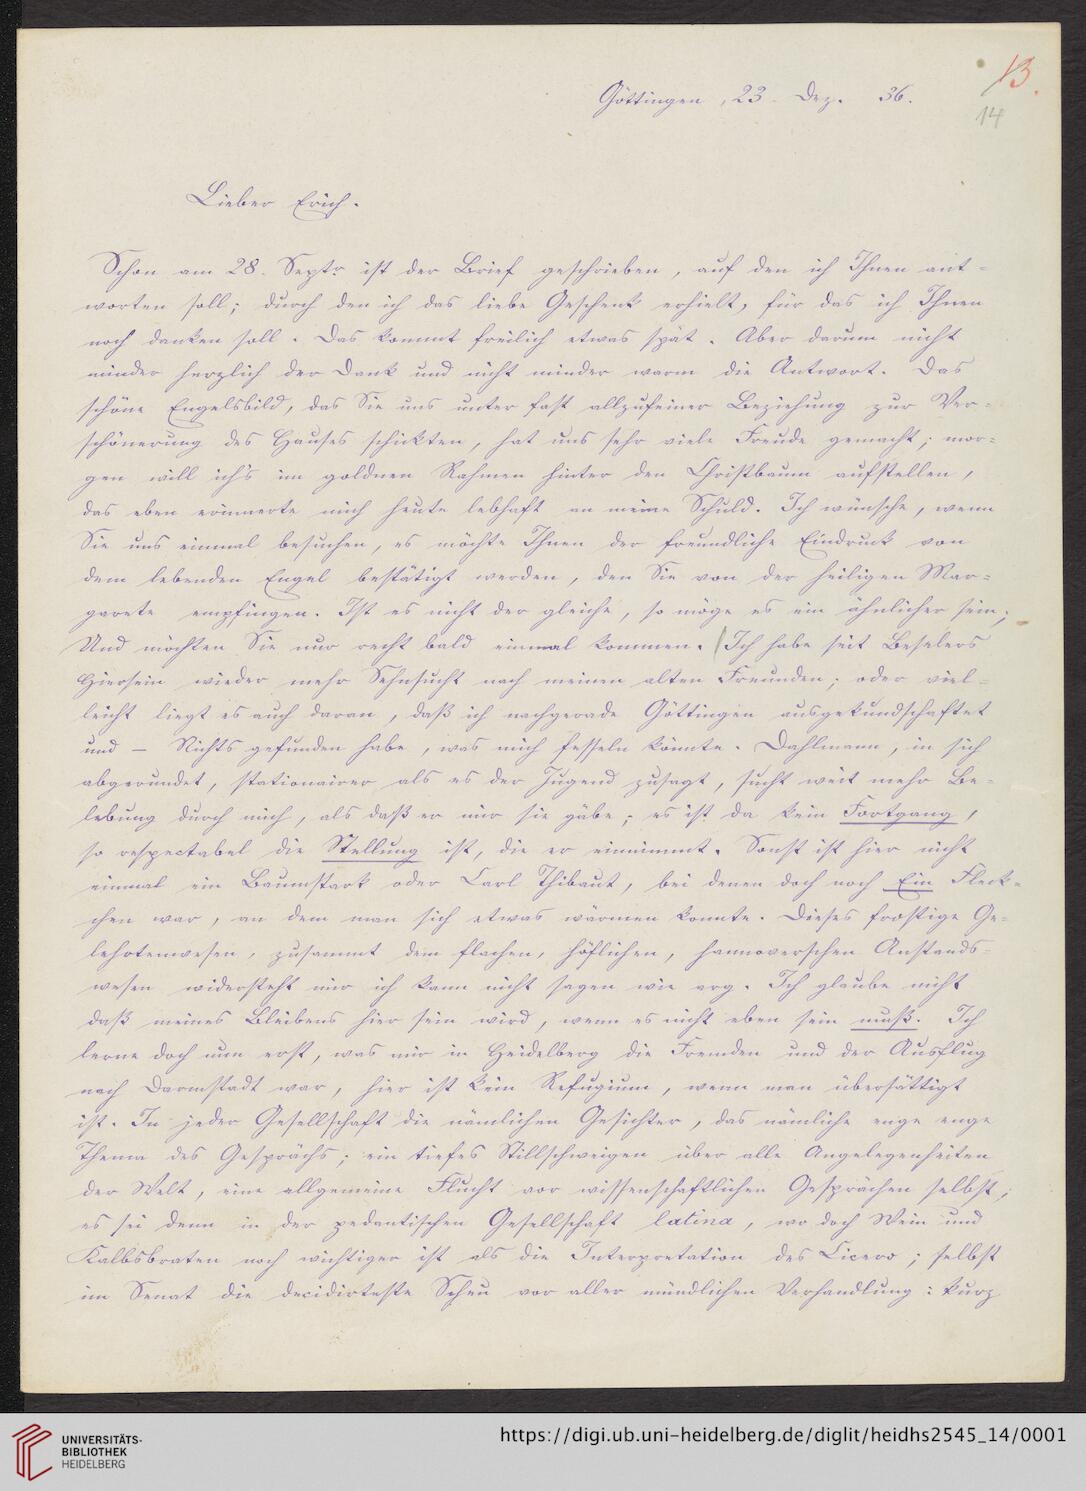 13.
14
Göttingen, 23. Dez. 36.
Lieber Erich.
Schon am 28. Septr ist der Brief geschrieben, auf den ich Ihnen ant-
worten soll; durch den ich das liebe Geschenk erhielt, für das ich Ihnen
noch danken soll. Das kommt freilich etwas spät. Aber darum nicht
minder herzlich der Dank und nicht minder warm die Antwort. Das
schöne Engelsbild, das Sie uns unter fast allzufeiner Beziehung zur Ver-
schönerung des Hauses schickten, hat uns sehr viele Freude gemacht; mor-
gen will ich's im goldnen Rahmen hinter den Christbaum aufstellen,
das eben erinnerte mich heute lebhaft an meine Schuld. Ich wünsche, wenn
Sie uns einmal besuchen, es möchte Ihnen der freundliche Eindruck von
dem lebenden Engel bestätigt werden, den Sie von der heiligen Mar-
garete empfingen. Ist es nicht der gleiche, so möge es ein ähnlicher sein;
Und möchten Sie nur recht bald einmal kommen. Ich habe seit Beselers
Hiersein wieder mehr Sehnsucht nach meinen alten Freunden; oder viel-
leicht liegt es auch daran, daß ich nachgerade Göttingen ausgekundschaftet
und – Nichts gefunden habe, was mich fesseln könnte. Dahlmann, in sich
abgerundet, stationairer als es der Jugend zusagt, sucht weit mehr Be-
lebung durch mich, als daß er mir sie gäbe; es ist da kein Fortgang,
so respectabel die Stellung ist, die er einnimmt. Sonst ist hier nicht
einmal ein Baumstark oder Carl Thibaut, bei denen doch noch Ein Fleck-
chen war, an dem man sich etwas wärmen konnte. Dieses frostige Ge-
lehrtenwesen, zusammt dem flachen, höflichen, hannoverschen Anstands-
wesen widersteht mir ich kann nicht sagen wie arg. Ich glaube nicht
daß meines Bleibens hier sein wird, wenn es nicht eben sein muß. Ich
lerne doch nun erst, was mir in Heidelberg die Fremden und der Ausflug
nach Darmstadt war, hier ist kein Refugium, wenn man übersättigt
ist. In jeder Gesellschaft die nämlichen Gesichter, das nämliche enge enge
Thema des Gesprächs; ein tiefes Stillschweigen über alle Angelegenheiten
der Welt, eine allgemeine Flucht vor wissenschaftlichen Gesprächen selbst;
es sei denn in der pedantischen Gesellschaft latina, wo doch Wein und
Kalbsbraten noch wichtiger ist als die Interpretation des Cicero; selbst
im Senat die decidirteste Scheu vor aller mündlichen Verhandlung: kurz
UNIVERSITÄTS-
BIBLIOTHEK
HEIDELBERG
https://digi.ub.uni-heidelberg.de/diglit/heidhs2545_14/0001